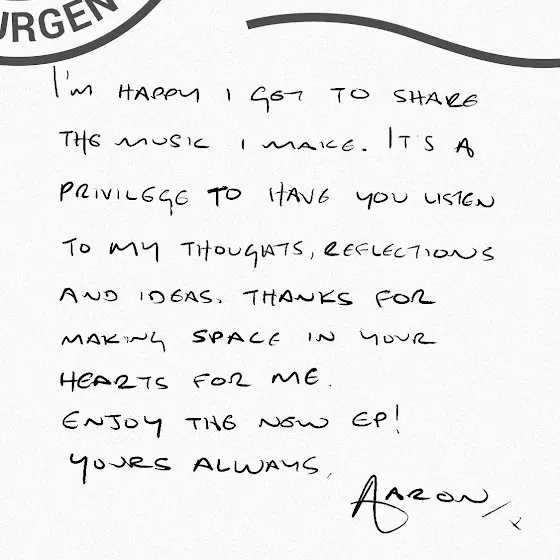 URGEN
I'm HAPPY I GET TO SHARE
THE MUSIC I MAKE. IT'S A
PRIVILEGE TO HAVE YOU LISTEN
TO MY THOUGHTS, REFLECTIONS
AND IDEAS. THANKS FOR
MAKING SPACE IN YOUR
HEARTS FOR ME.
ENJOY THE NEW EP!
YOURS ALWAYS,
AARON/x